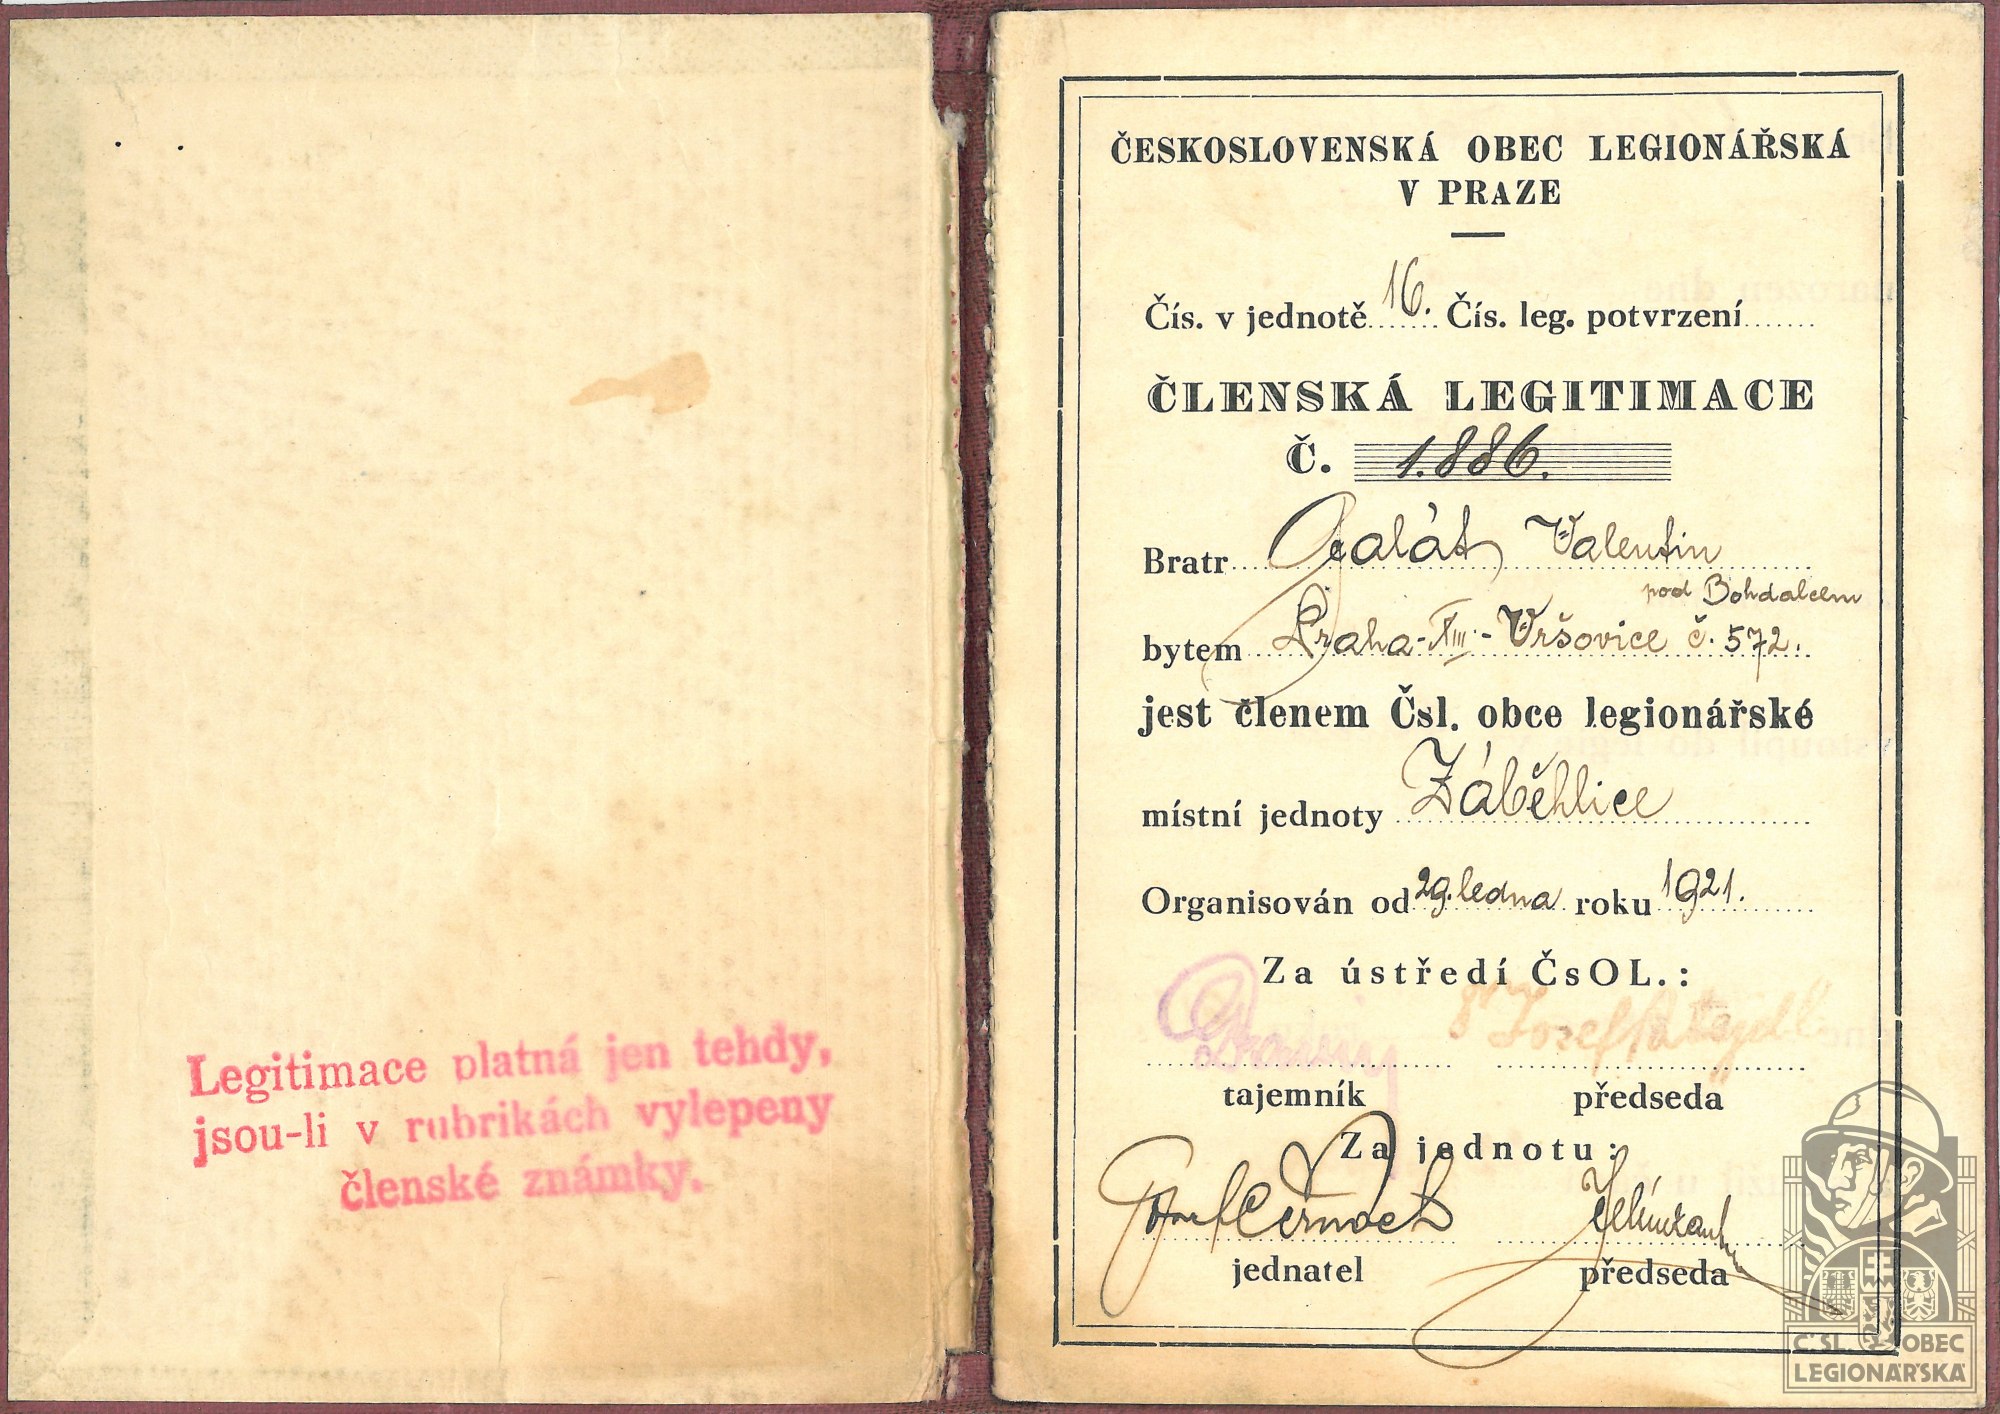 Legitimace platná jen tehdy,
jsou-li v rubrikách vylepeny
členské známky.
ČESKOSLOVENSKÁ OBEC LEGIONÁŘSKÁ
V PRAZE
Čís. v jednotě 16. Čís. leg. potvrzení
ČLENSKÁ LEGITIMACE
Č. 1.886.
Bratr Galát Valentin
pod Bohdalcem
bytem Praha-XIII.-Vršovice č. 572.
jest členem Čsl. obce legionářské
místní jednoty Záběhlice
Organisován od 29. ledna roku 1921.
Za ústředí ČsOL.:
Josef Patejdl
tajemník předseda
Za jednotu:
Josef Černoch
jednatel předseda
Č.SL. OBEC
LEGIONÁŘSKÁ